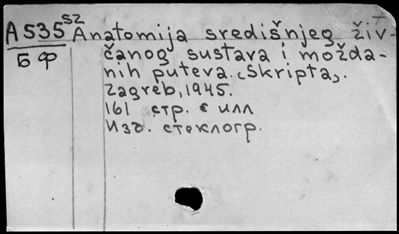 A535 SZ Anatomija središnjeg živ-
БФ čanog sustava i možda-
nih puteva. (Skripta).
Zagreb, 1945.
161 стр. с илл
Изд. стеклогр.